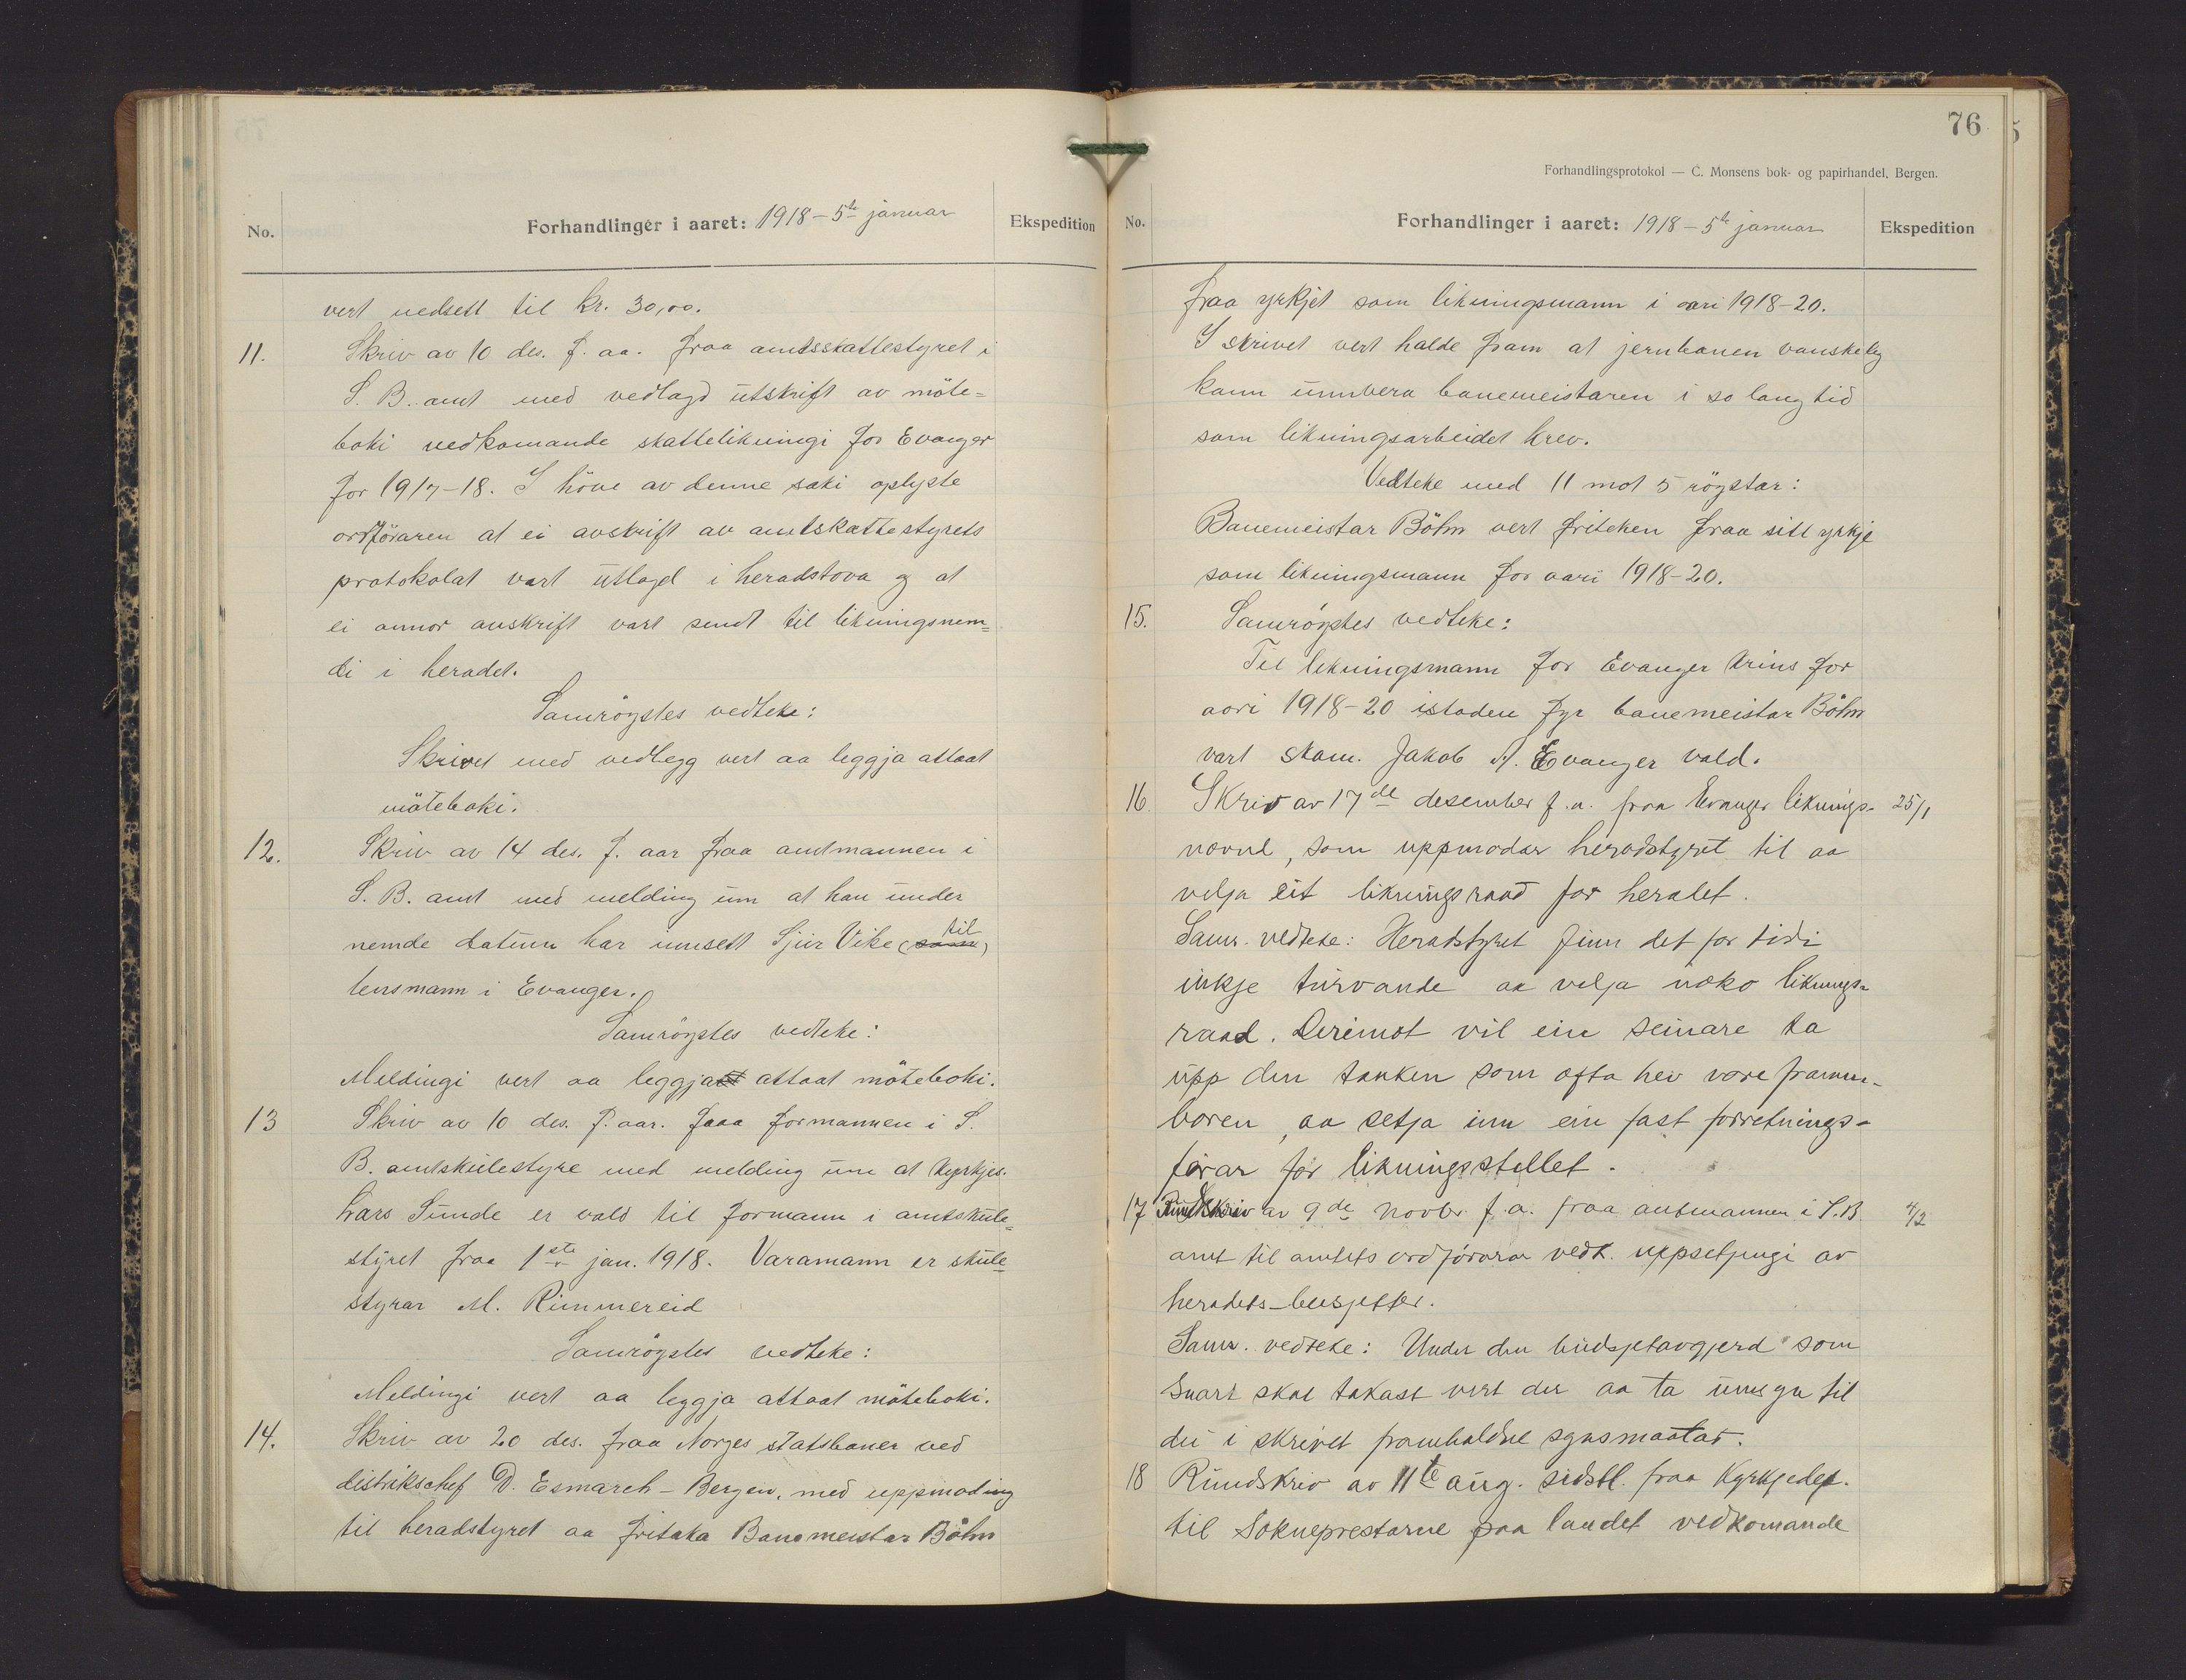 No.
Forhandlinger i aaret: 1918 – 5te januar
Ekspedition
vert nedsett til kr. 30,00.
11. Skriv av 10 des. f. aa. fraa amtsskattestyret i
S. B. amt med vedlagd utskrift av möte=
boki vedkomande skattelikningi for Evanger
for 1917-18. I höve av denne saki oplyste
ordföraren at ei avskrift av amtskattestyrets
protokolat vart utlagd i heradstova og at
ei annor avskrift vart sendt til likningsnem=
di i heradet.
Samröystes vedteke:
Skrivet med vedlegg vert aa leggja attaat
möteboki.
12. Skriv av 14 des. f. aar fraa amtmannen i
S. B. amt med melding um at han under
nemde datum har innsett Sjur Vike (som) til
lensmann i Evanger.
Samröystes vedteke:
Meldingi vert aa leggja attaat möteboki.
13 Skriv av 10 des. f. aar. fraa formannen i S.
B. amtskulestyre med melding um at kyrkjes.
Lars Sunde er vald til formann i amtskule=
styret fraa 1ste jan. 1918. Varamann er skule=
styrar M. Rimmereid
Samröystes vedteke:
Meldingi vert aa leggja attaat möteboki.
14. Skriv av 20 des. fraa Norges statsbaner ved
distrikschef D. Esmarch – Bergen, med uppmoding
til heradstyret aa fritaka Banemeistar Böhm
76
Forhandlingsprotokol — C. Monsens bok- og papirhandel, Bergen.
No.
Forhandlinger i aaret: 1918 – 5te januar
Ekspedition
fraa yrkjet som likningsmann i aari 1918-20.
I skrivet vert halde fram at jernbanen vanskeleg
kann unnvera banemeistaren i so lang tid
som likningsarbeidet krev.
Vedteke med 11 mot 5 röystar:
Banemeistar Böhm vert friteken fraa sitt yrkje
som likningsmann for aari 1918-20.
15. Samröystes vedteke:
Til likningsmann for Evanger krins for
aari 1918-20 istaden fyr banemeistar Böhm
vart skom. Jakob A. Evanger vald.
16. Skriv av 17de desember f. a. fraa Evanger liknings- 25/1
nævnd, som uppmodar heradstyret til aa
velja eit likningsraad for heradet.
Samr. vedteke: Heradstyret finn det for tidi
inkje turvande aa velja noko liknings-
raad. Derimot vil ein seinare ta
upp den tanken som ofta hev vore framm-
boren, aa setja inn ein fast forretnings-
förar for likningsstellet.
17 Rundskriv av 9de novbr. f. a. fraa amtmannen i S. B. 4/2
amt til amtets ordförarar vedk. uppsetjingi av
heradets-budsjetter.
Samr. vedteke: Under den budsjetavgjerd som
snart skal takast vert der aa ta umsyn til
dei i skrivet framhaldne synsmaatar.
18 Rundskriv av 11te aug. sidstl. fraa Kyrkjedep.
til Sokneprestarne paa landet vedkomande